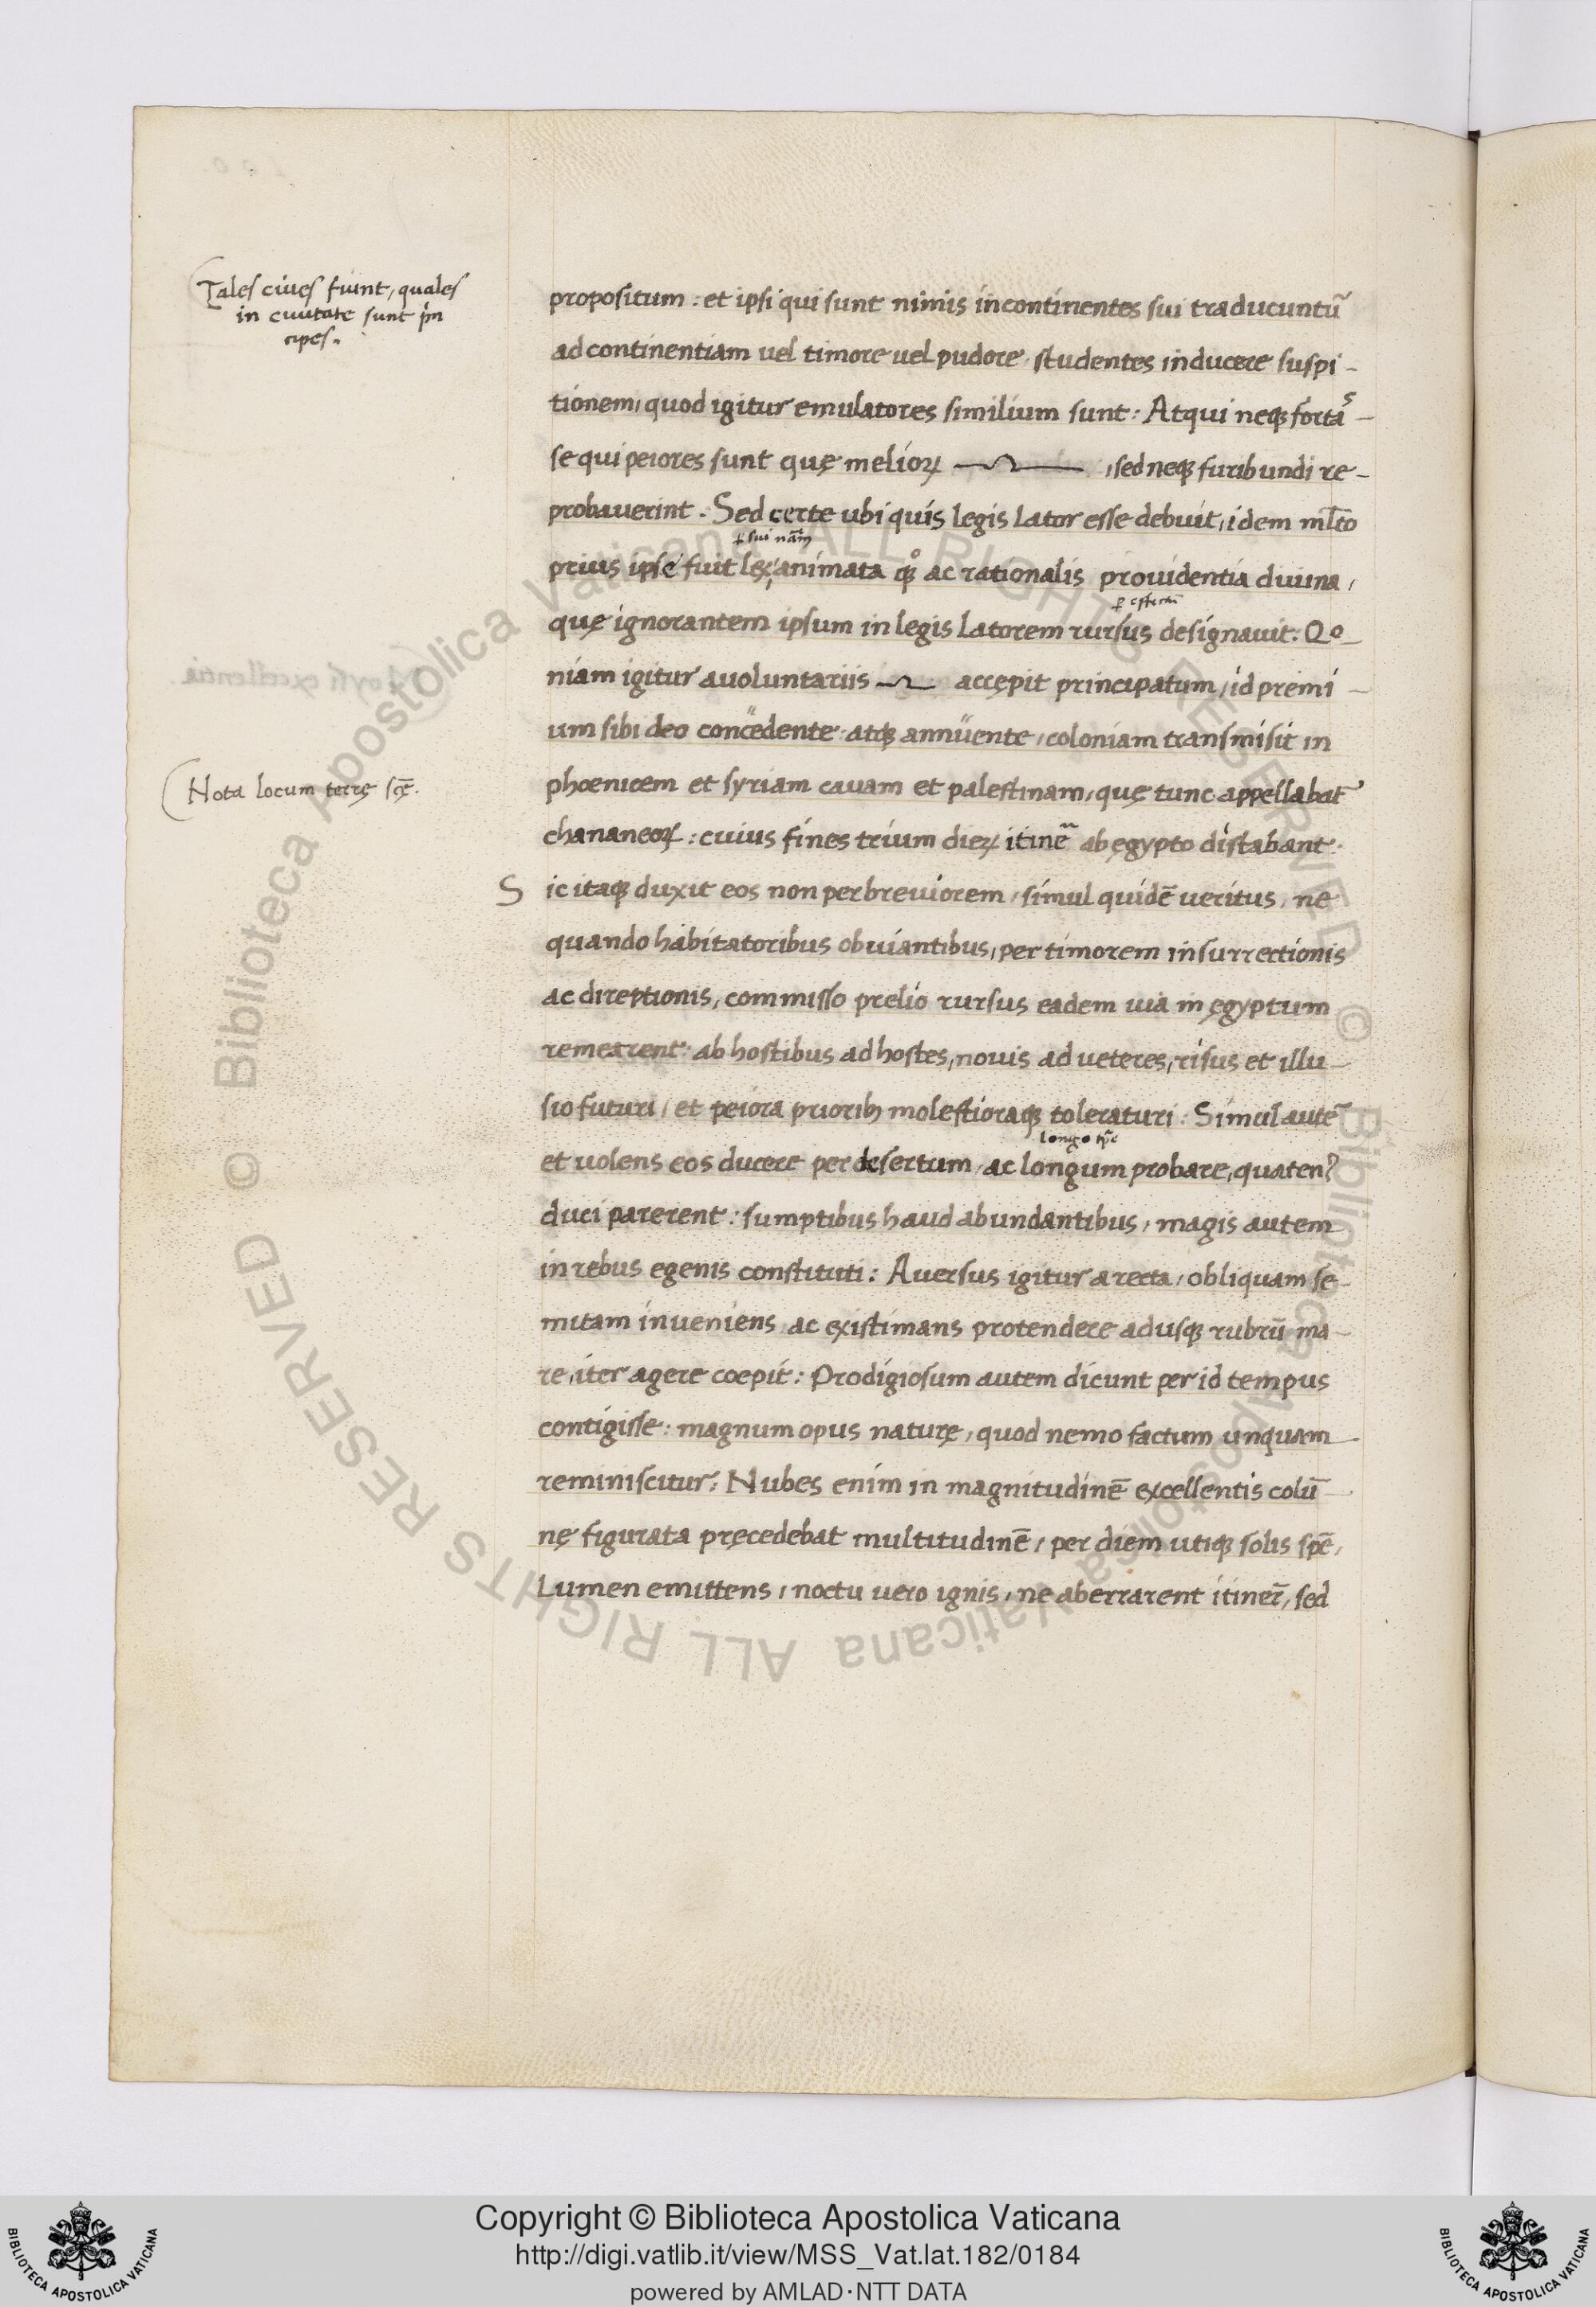 Tales ciues fiunt, quales
in ciuitate sunt pͥn
cipes.
propositum : et ipsi qui sunt nimis incontinentes sui traducuntũ
ad continentiam uel timore uel pudore, studentes inducere suspi-
tionem, quod igitur emulatores similium sunt : Atqui neqꝫ fortaˢ-
se qui peiores sunt quę melioꝝ , sed neqꝫ furibundi re-
probauerint . Sed certe ubi quis legis lator esse debuit, idem ml̅to
ꝑ sui nãm
prius ipse fuit lex, animata qꝫ° ac rationalis prouidentia diuina,
ꝑ effectũ
quę ignorantem ipsum in legis latorem rursus designauit : Qo-
niam igitur a uoluntariis accepit principatum, id premi-
um sibi deo concedente atqꝫ annuente, coloniam transmisit in
Nota locum terrę scę̃.
phoenicem et syriam cauam et palestinam, quę tunc appellabat̃
chananeoꝝ : cuius fines trium dieꝝ itinẽ ab ęgypto distabant.
Sic itaqꝫ duxit eos non per breuiorem, simul quidẽ ueritus, ne
quando habitatoribus obuiantibus, per timorem insurrectionis
ac direptionis, commisso prelio rursus eadem uia in ęgyptum
remearent : ab hostibus ad hostes, nouis ad ueteres, risus et illu-
sio futuri, et peiora priorib; molestioraqꝫ toleraturi : Simul autẽ
longo tp̃e
et uolens eos ducere per desertum, ac longum probare, quaten⁹
duci parerent : sumptibus haud abundantibus, magis autem
in rebus egenis constituti : Auersus igitur a recta, obliquam se-
mitam inueniens, ac existimans protendere adusqꝫ rubrũ ma-
re, iter agere coepit : Prodigiosum autem dicunt per id tempus
contigisse : magnum opus naturę, quod nemo factum unquam
reminiscitur : Nubes enim in magnitudinẽ excellentis colũ-
nę figurata pręcedebat multitudinẽ, per diem utiqꝫ solis spẽ,
Lumen emittens, noctu uero ignis, ne aberrarent itiner̃, sed
© Biblioteca Apostolica Vaticana ALL RIGHTS RESERVED
© Biblioteca Apostolica Vaticana ALL RIGHTS RESERVED
Copyright © Biblioteca Apostolica Vaticana
http://digi.vatlib.it/view/MSS_Vat.lat.182/0184
powered by AMLAD·NTT DATA
BIBLIOTECA APOSTOLICA VATICANA
BIBLIOTECA APOSTOLICA VATICANA